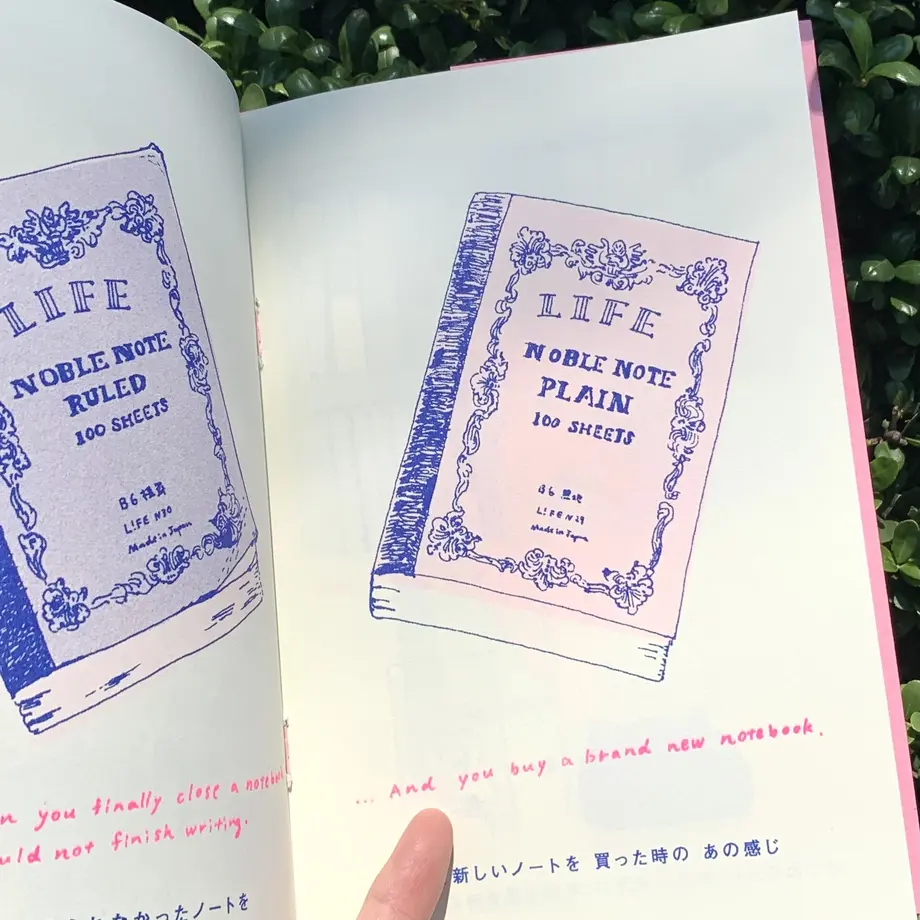 LIFE
NOBLE NOTE
RULED
100 SHEETS
B6 横罫
LIFE N30
Made in Japan
n you finally close a notebook
uld not finish writing.
なかったノートを
LIFE
NOBLE NOTE
PLAIN
100 SHEETS
B6 無地
LIFE N29
Made in Japan
... And you buy a brand new notebook.
新しいノートを 買った時の あの感じ